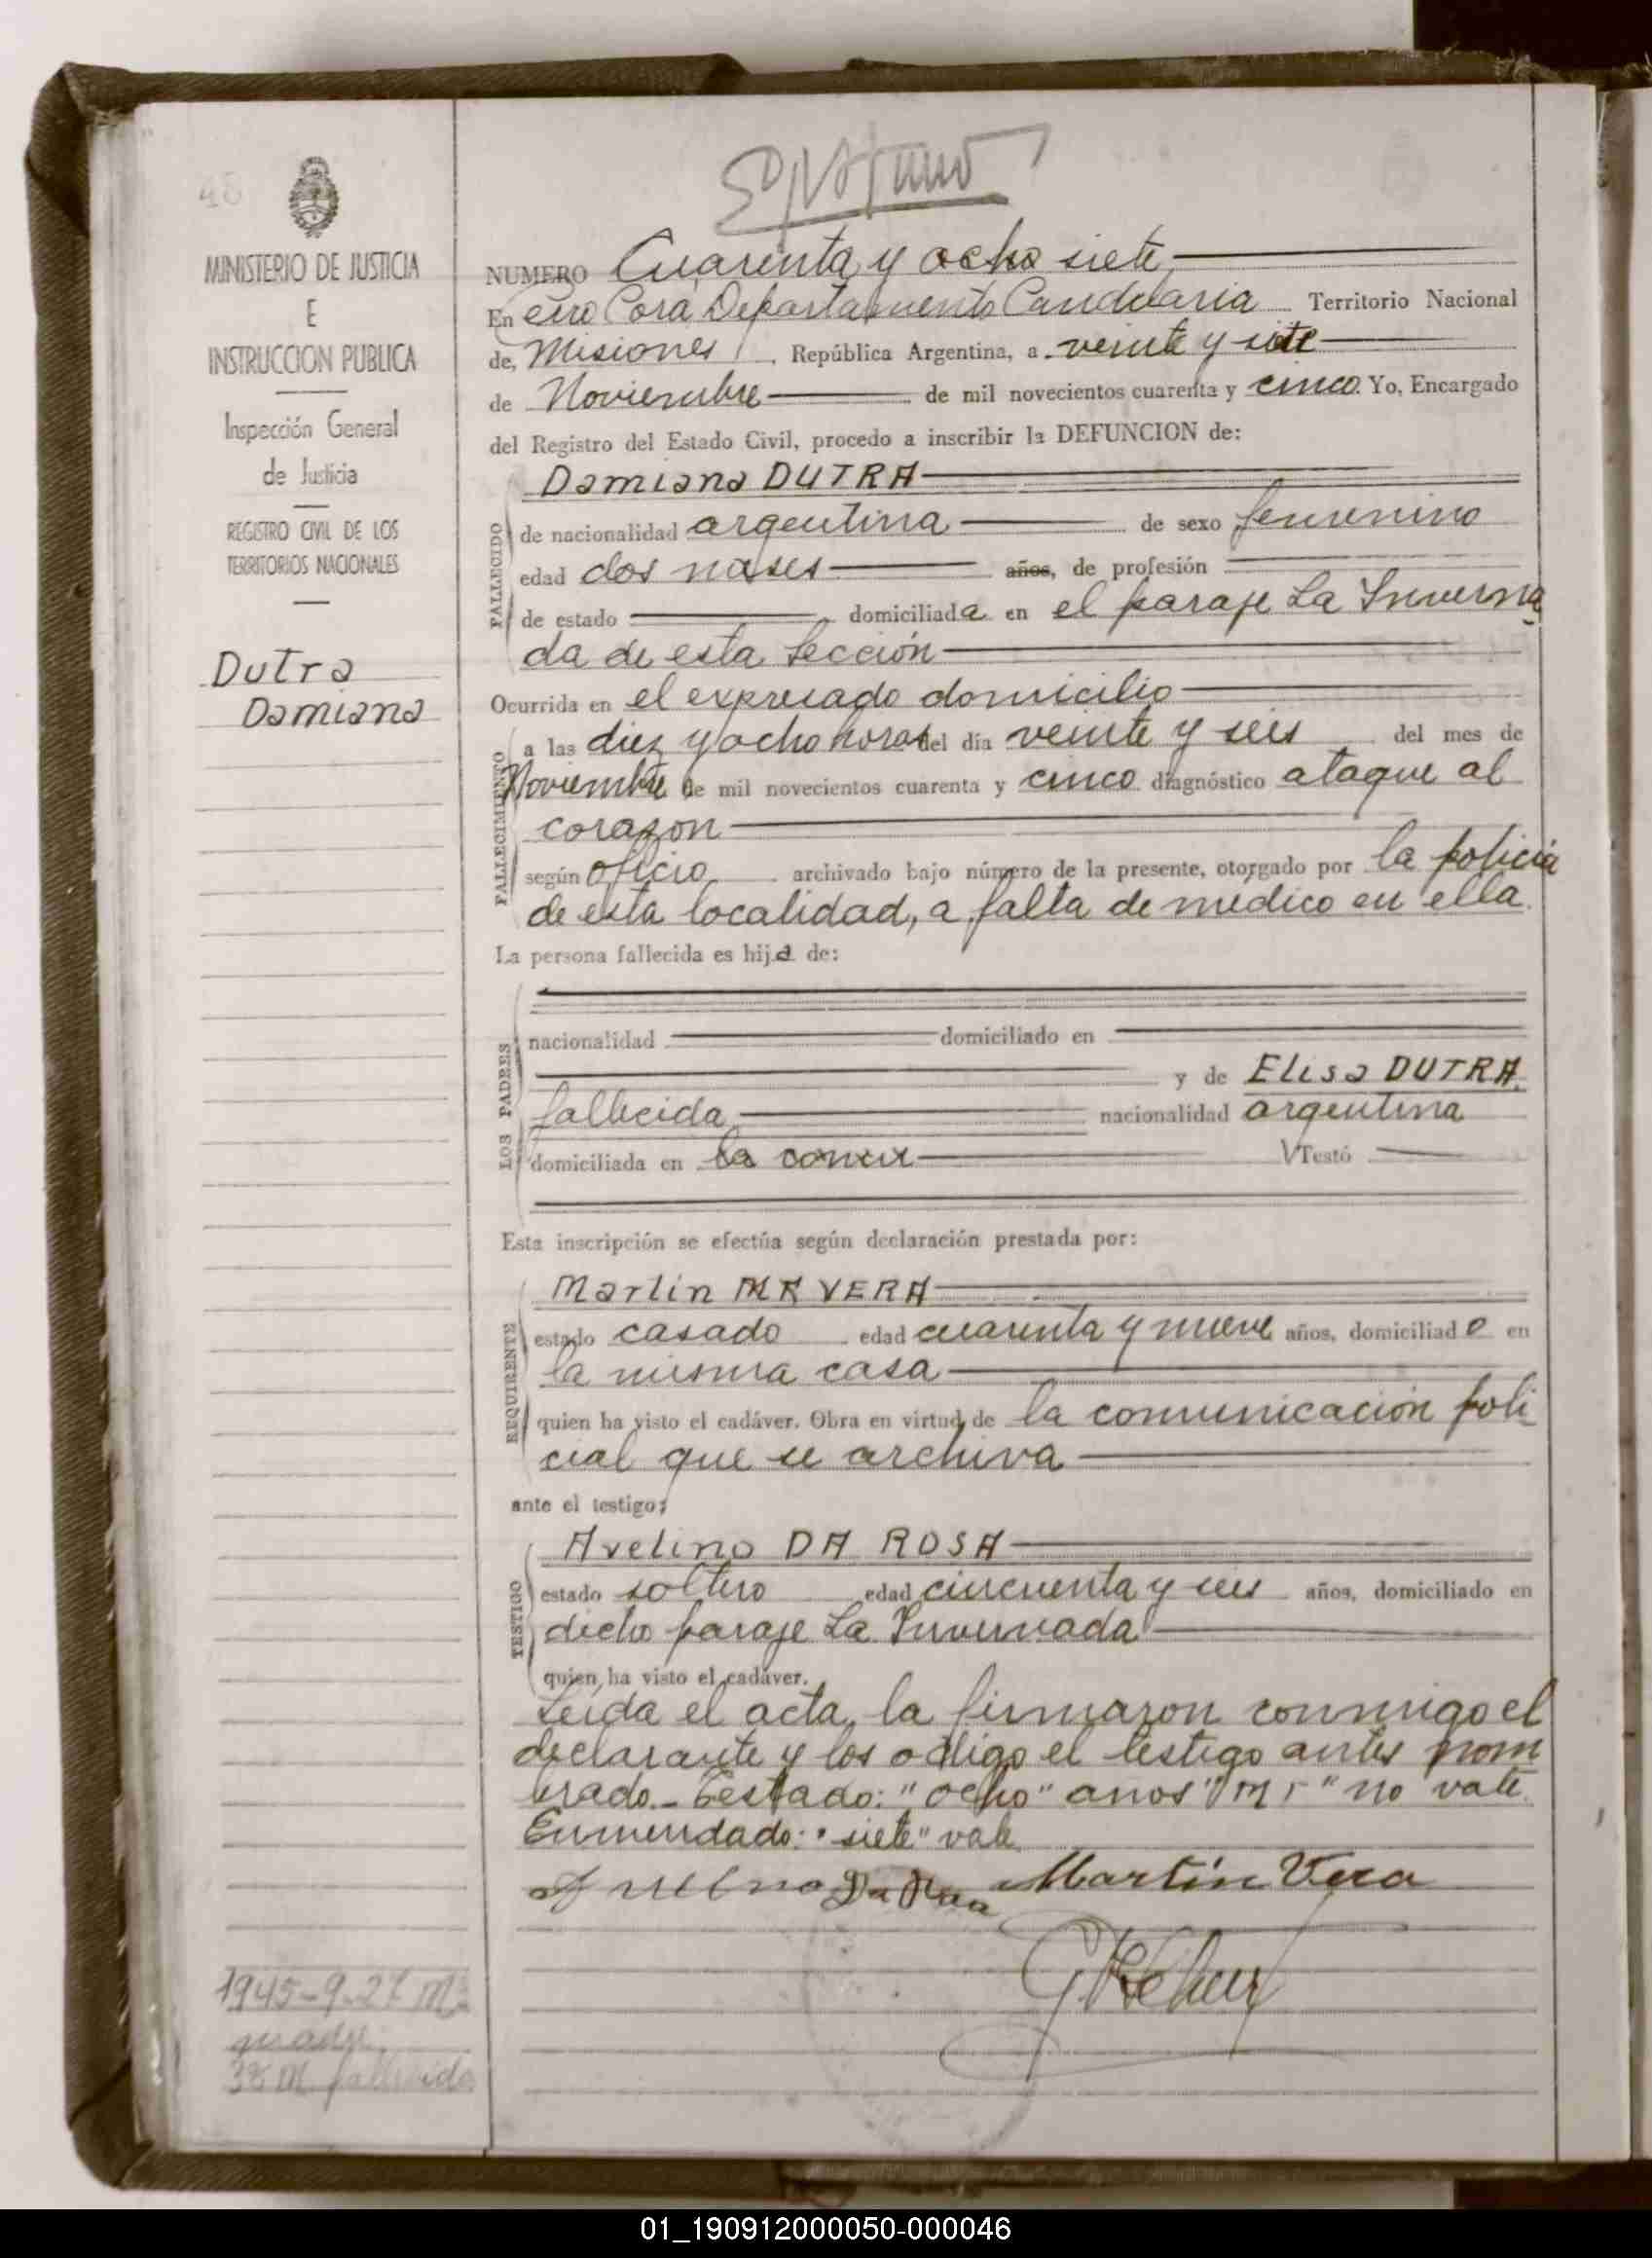 48
MINISTERIO DE JUSTICIA
E
INSTRUCCION PUBLICA
Inspección General
de Justicia
REGISTRO CIVIL DE LOS
TERRITORIOS NACIONALES
Dutra
Damiana
NUMERO Cuarenta y ocho siete
En Cerro Corá, Departamento Candelaria Territorio Nacional
de, Misiones, República Argentina, a veinte y siete
de Noviembre de mil novecientos cuarenta y cinco. Yo, Encargado
del Registro del Estado Civil, procedo a inscribir la DEFUNCION de:
Damiana DUTRA
FALLECIDO
de nacionalidad argentina de sexo femenino
edad dos meses años, de profesión
de estado domiciliada en el paraje La Inverna
da de esta Sección
Ocurrida en el expresado domicilio
FALLECIMIENTO
a las diez y ocho horas del día veinte y seis del mes de
Noviembre de mil novecientos cuarenta y cinco diagnóstico ataque al
corazon
según oficio archivado bajo número de la presente, otorgado por la policia
de esta localidad, a falta de médico en ella.
La persona fallecida es hija de:
LOS PADRES
nacionalidad domiciliado en
y de Elisa DUTRA.
fallecida nacionalidad argentina
domiciliada en Testó
Esta inscripción se efectúa según declaración prestada por:
Martin MR VERA
REQUIRENTE
estado casado edad cuarenta y nueve años, domiciliado en
la misma casa
quien ha visto el cadáver. Obra en virtud de la comunicación poli
cial que se archiva
ante el testigo:
Avelino DA ROSA
TESTIGO
estado soltero edad cincuenta y seis años, domiciliado en
dicho paraje La Invernada
quien ha visto el cadáver.
Leída el acta, la firmaron conmigo el
declarante y los o digo el testigo antes nom
brado.- Testado: "ocho" años "mr" no vale.
Enmendado: "siete" vale
Avelino Da Rosa Martín Vera
1945-9-27 M
madre
38 M fallecida
01_190912000050-000046